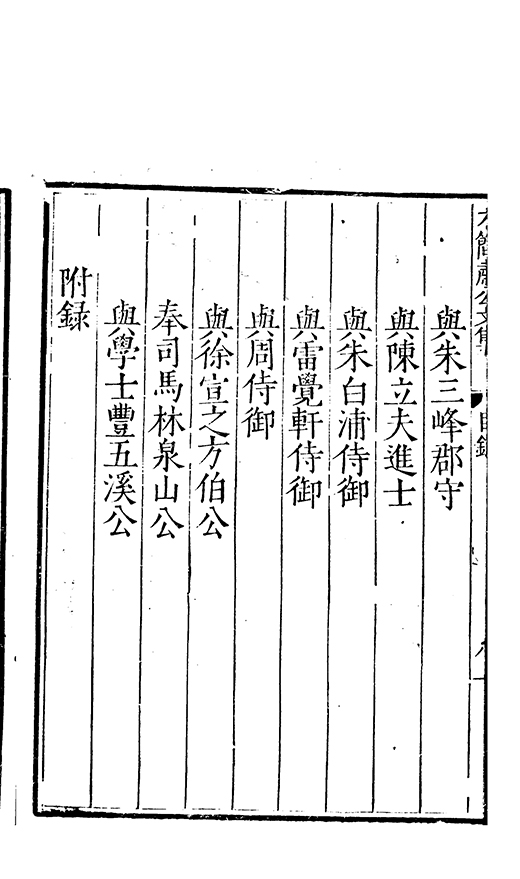 與朱三峰郡守
與陳立夫進士
與朱白浦侍御
與雷覺軒侍御
與周侍御
與徐宣之方伯公
奉司馬林泉山公
與學士豐五溪公
附録